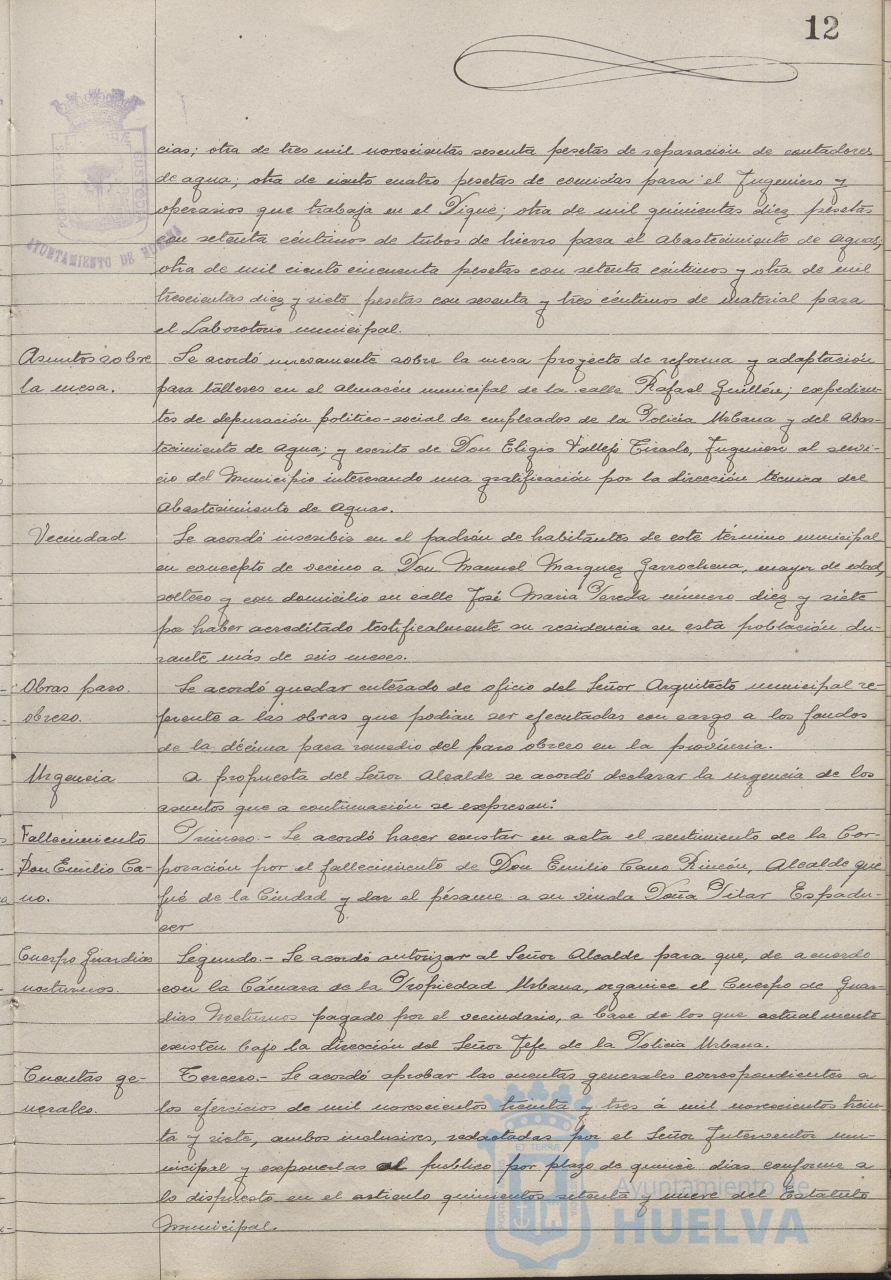 12
cias; otra de tres mil novescientas sesenta pesetas de reparación de contadores
de agua; otra de ciento cuatro pesetas de comidas para el Ingeniero y
operarios que trabaja en el Dique; otra de mil quinientas diez pesetas
con setenta céntimos de tubos de hierro para el abastecimiento de aguas;
otra de mil ciento cincuenta pesetas con setenta céntimos y otra de mil
trescientas diez y siete pesetas con sesenta y tres céntimos de material para
el Laboratorio municipal.
Asuntos sobre
la mesa.
Se acordó nuevamente sobre la mesa proyecto de reforma y adaptación
para talleres en el almacén municipal de la calle Rafael Guillén; expedien-
tes de depuración politico-social de empleados de la Policia Urbana y del Abas-
tecimiento de agua; y escrito de Don Eligio Vallejo Tirado, Ingeniero al servi-
cio del Municipio interesando una gratificación por la dirección técnica del
Abastecimiento de Aguas.
Vecindad
Se acordó inscribir en el padrón de habitantes de este término municipal
en concepto de vecino a Don Manuel Marquez Garrochena, mayor de edad,
soltero y con domicilio en calle José Maria Pereda número diez y siete
por haber acreditado testificalmente su residencia en esta población du-
rante más de seis meses.
Obras paro
obrero.
Se acordó quedar enterado de oficio del Señor Arquitecto municipal re-
ferente a las obras que podian ser ejecutadas con cargo a los fondos
de la décima para remedio del paro obrero en la provincia.
Urgencia
A propuesta del Señor Alcalde se acordó declarar la urgencia de los
asuntos que a continuación se expresan:
Fallecimiento
Don Emilio Ca-
no.
Primero.- Se acordó hacer constar en acta el sentimiento de la Cor-
poración por el fallecimiento de Don Emilio Cano Rincón, Alcalde que
fué de la Ciudad y dar el pésame a su viuda Doña Pilar Espadu-
cer
Cuerpo Guardias
nocturnos.
Segundo.- Se acordó autorizar al Señor Alcalde para que, de acuerdo
con la Cámara de la Propiedad Urbana, organice el Cuerpo de Guar-
dias Nocturnos pagado por el vecindario, a base de los que actualmente
existen bajo la dirección del Señor Jefe de la Policia Urbana.
Cuentas ge-
nerales.
Tercero.- Se acordó aprobar las cuentas generales correspondientes a
los ejercicios de mil novescientos treinta y tres á mil novescientos trein-
ta y siete, ambos inclusives, redactadas por el Señor Interventor mu-
nicipal y exponerlas al publico por plazo de quince dias conforme a
lo dispuesto en el articulo quinientos setenta y nueve del Estatuto
Municipal.
AYUNTAMIENTO DE HUELVA
Ayuntamiento de
HUELVA